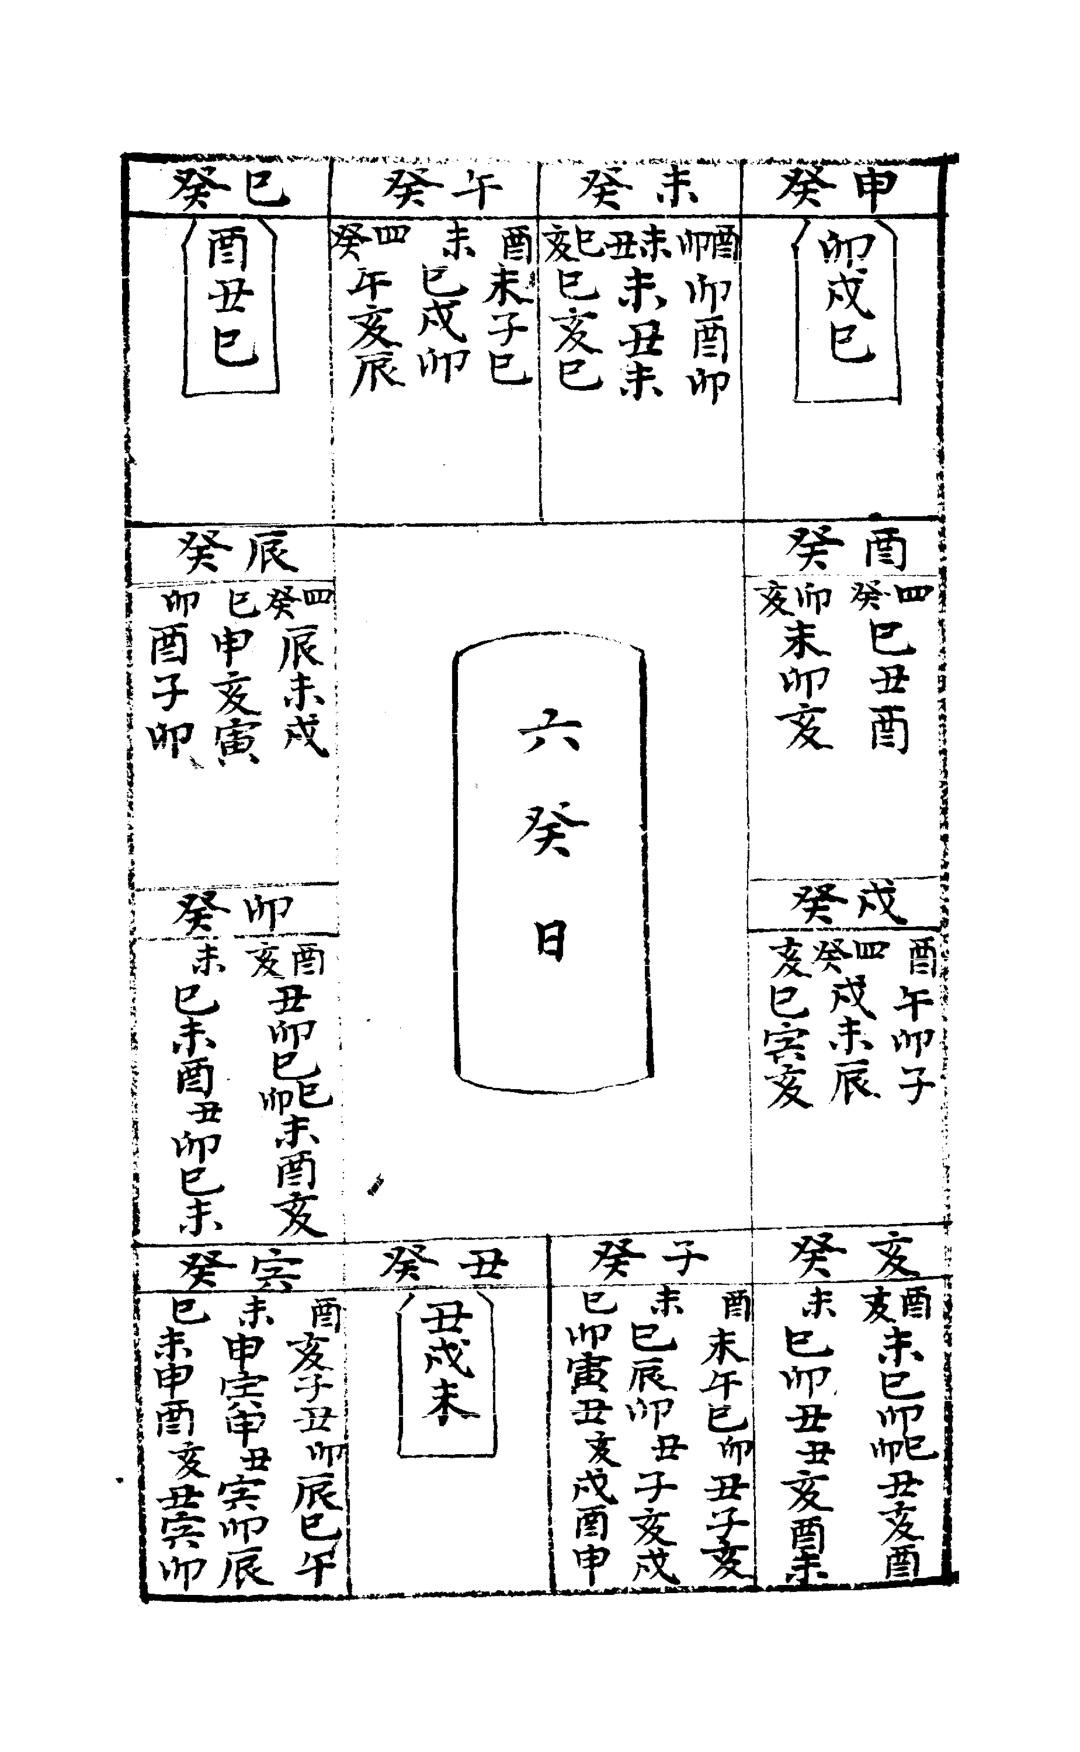 六癸日
癸申
卯戍巳
癸未
卯酉
卯酉卯
丑未
未丑未
亥巳
巳亥巳
癸午
酉
未子巳
未
巳戍卯
癸四
午亥辰
癸巳
酉丑巳
癸酉
癸四
巳丑酉
亥卯
未卯亥
癸辰
癸四
辰未戍
巳
申亥寅
卯
酉子卯
癸戍
酉
午卯子
癸四
戍未辰
亥
巳寅亥
癸卯
亥酉
丑卯巳
卯巳
未酉亥
未
巳未酉
丑
卯巳未
癸亥
亥酉
未巳卯
卯巳
丑亥酉
未
巳卯丑
丑
亥酉未
癸子
酉
未午巳
卯
丑子亥
未
巳辰卯
丑
子亥戍
巳
卯寅丑
亥
戍酉申
癸丑
丑戍未
癸寅
酉
亥子丑
卯
辰巳午
未
申寅申
丑
寅卯辰
巳
未申酉
亥
丑寅卯